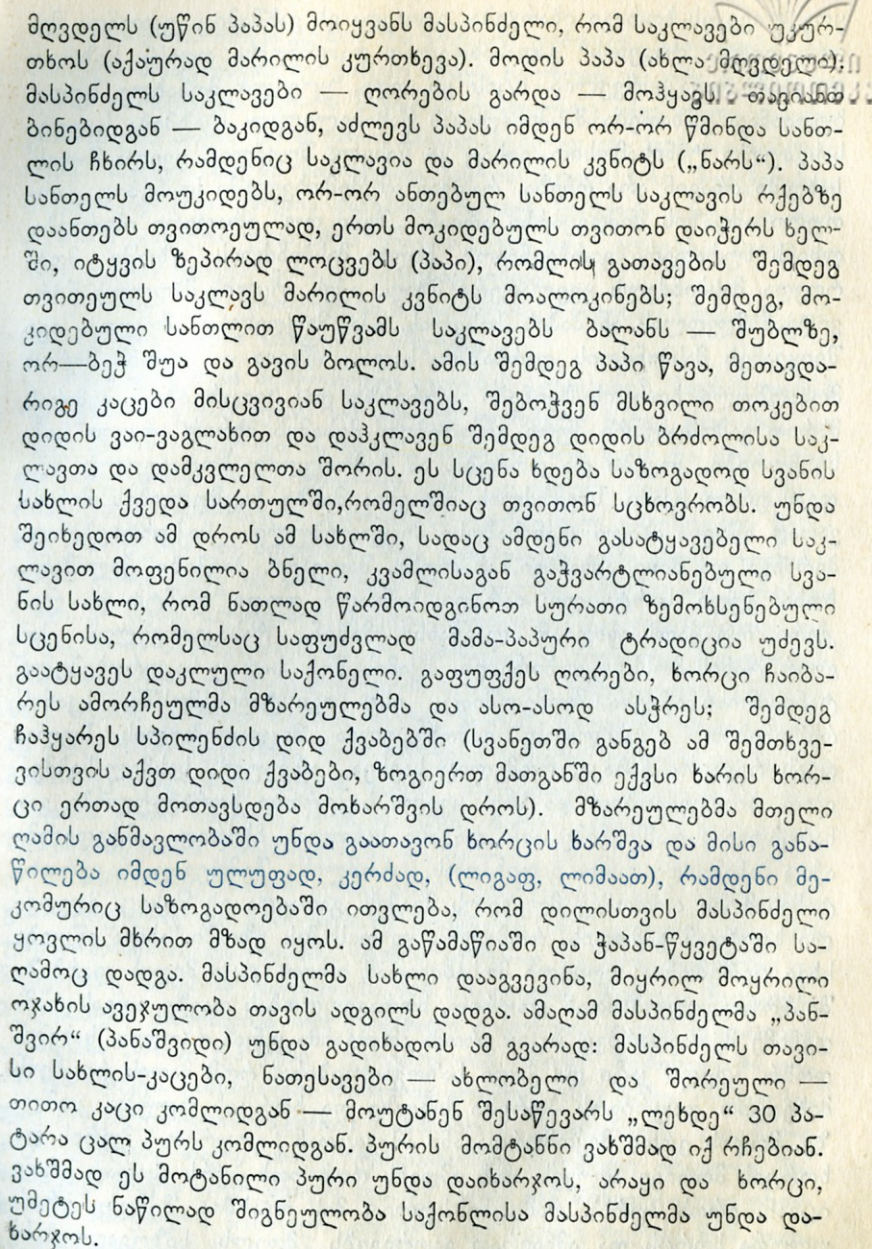 მღვდელს (უწინ პაპას) მოიყვანს მასპინძელი, რომ საკლავები უკურ-
თხოს (აქაურად მარილის კურთხევა). მოდის პაპა (ახლა მღვდელი).
მასპინძელს საკლავები — ღორების გარდა — მოჰყავს თავიანთ
ბინებიდგან — ბაკიდგან, აძლევს პაპას იმდენ ორ-ორ წმინდა სანთ-
ლის ჩხირს, რამდენიც საკლავია და მარილის კვნიტს („ნარს“). პაპა
სანთელს მოუკიდებს, ორ-ორ ანთებულ სანთელს საკლავის რქებზე
დაანთებს თვითოეულად, ერთს მოკიდებულს თვითონ დაიჭერს ხელ-
ში, იტყვის ზეპირად ლოცვებს (პაპი), რომლის გათავების შემდეგ
თვითეულს საკლავს მარილის კვნიტს მოალოკინებს; შემდეგ, მო-
კიდებული სანთლით წაუწვამს საკლავებს ბალანს — შუბლზე,
ორ—ბეჭ შუა და გავის ბოლოს. ამის შემდეგ პაპი წავა, მეთავდა-
რიგე კაცები მისცვივიან საკლავებს, შებოჭვენ მსხვილი თოკებით
დიდის ვაი-ვაგლახით და დაჰკლავენ შემდეგ დიდის ბრძოლისა საკ-
ლავთა და დამკვლელთა შორის. ეს სცენა ხდება საზოგადოდ სვანის
სახლის ქვედა სართულში,რომელშიაც თვითონ სცხოვრობს. უნდა
შეიხედოთ ამ დროს ამ სახლში, სადაც ამდენი გასატყავებელი საკ-
ლავით მოფენილია ბნელი, კვამლისაგან გაჭვარტლიანებული სვა-
ნის სახლი, რომ ნათლად წარმოიდგინოთ სურათი ზემოხსენებული
სცენისა, რომელსაც საფუძვლად მამა-პაპური ტრადიცია უძევს.
გაატყავეს დაკლული საქონელი. გაფუფქეს ღორები, ხორცი ჩაიბა-
რეს ამორჩეულმა მზარეულებმა და ასო-ასოდ ასჭრეს; შემდეგ
ჩაჰყარეს სპილენძის დიდ ქვაბებში (სვანეთში განგებ ამ შემთხვე-
ვისთვის აქვთ დიდი ქვაბები, ზოგიერთ მათგანში ექვსი ხარის ხორ-
ცი ერთად მოთავსდება მოხარშვის დროს). მზარეულებმა მთელი
ღამის განმავლობაში უნდა გაათავონ ხორცის ხარშვა და მისი განა-
წილება იმდენ ულუფად, კერძად, (ლიგაფ, ლიმაათ), რამდენი მე-
კომურიც საზოგადოებაში ითვლება, რომ დილისთვის მასპინძელი
ყოვლის მხრით მზად იყოს. ამ გაწამაწიაში და ჭაპან-წყვეტაში სა-
ღამოც დადგა. მასპინძელმა სახლი დააგვევინა, მიყრილ მოყრილი
ოჯახის ავეჯულობა თავის ადგილს დადგა. ამაღამ მასპინძელმა „პან-
შვირ“ (პანაშვიდი) უნდა გადიხადოს ამ გვარად: მასპინძელს თავი-
სი სახლის-კაცები, ნათესავები — ახლობელი და შორეული —
თითო კაცი კომლიდგან — მოუტანენ შესაწევარს „ლეხდე“ 30 პა-
ტარა ცალ პურს კომლიდგან. პურის მომტანნი ვახშმად იქ რჩებიან.
ვახშმად ეს მოტანილი პური უნდა დაიხარჯოს, არაყი და ხორცი,
უმეტეს ნაწილად შიგნეულობა საქონლისა მასპინძელმა უნდა და-
ხარჯოს.